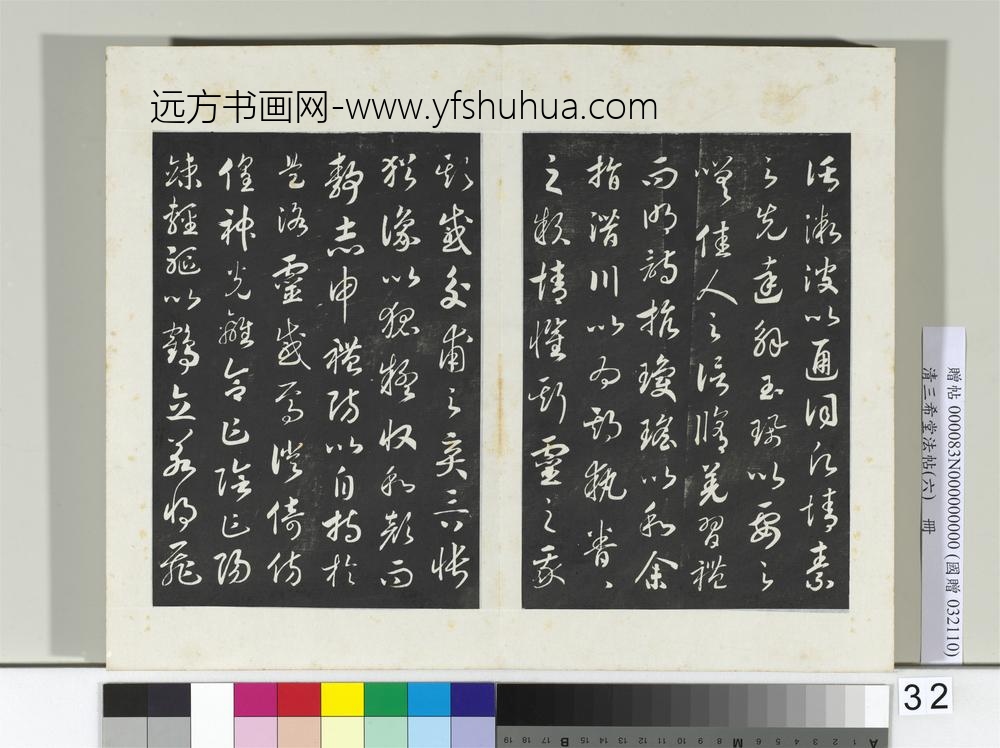 远方书画网-www.yfshuhua.com
託微波以通詞願情素
之先達解玉珮以要之
嗟佳人之信脩羌習禮
而明詩抗瓊瑤以和余
指潛川以為期執眷〻
之款情懼斯靈之我
欺感交甫之棄言悵
猶豫以狐疑收和顏而
靜志申禮防以自持於
是洛靈感焉徙倚彷
徨神光離合乍陰乍陽
竦輕軀以鶴立若將飛
贈帖 000083N000000000 (國贈 032110)
清三希堂法帖(六) 冊
32
A 1 2 3 4 5 6 M 8 9 10 11 12 13 14 15 B 17 18 19